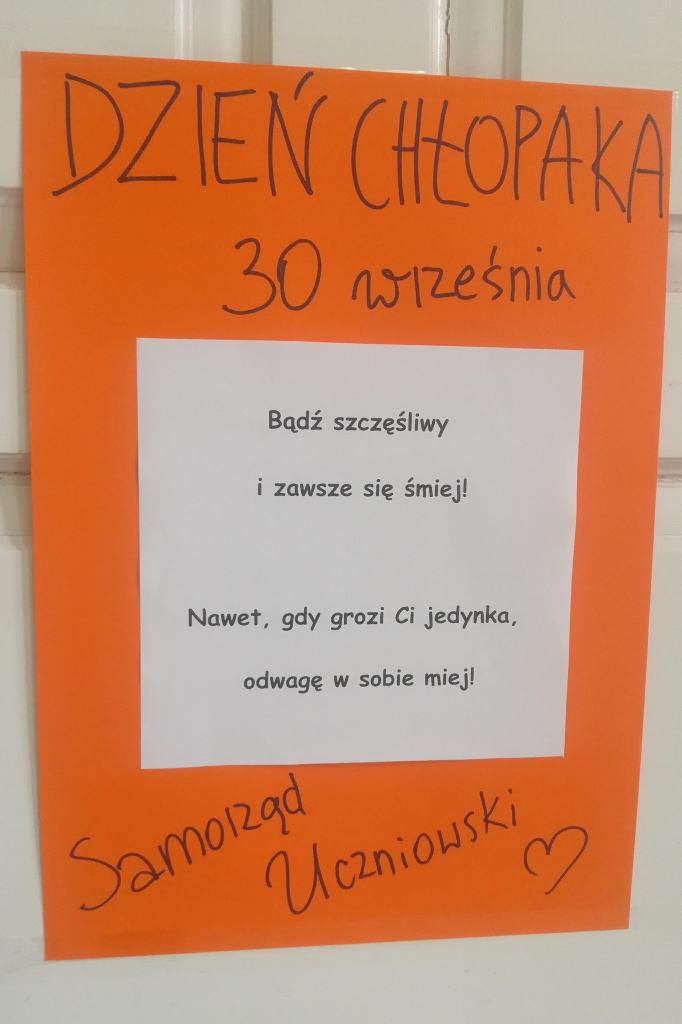 DZIEŃ CHŁOPAKA
30 września
Bądź szczęśliwy
i zawsze się śmiej!
Nawet, gdy grozi Ci jedynka,
odwagę w sobie miej!
Samorząd
Uczniowski